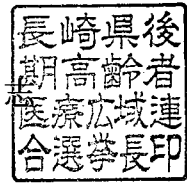 長崎県後
期高齢者
医療広域連
合選挙長印
志